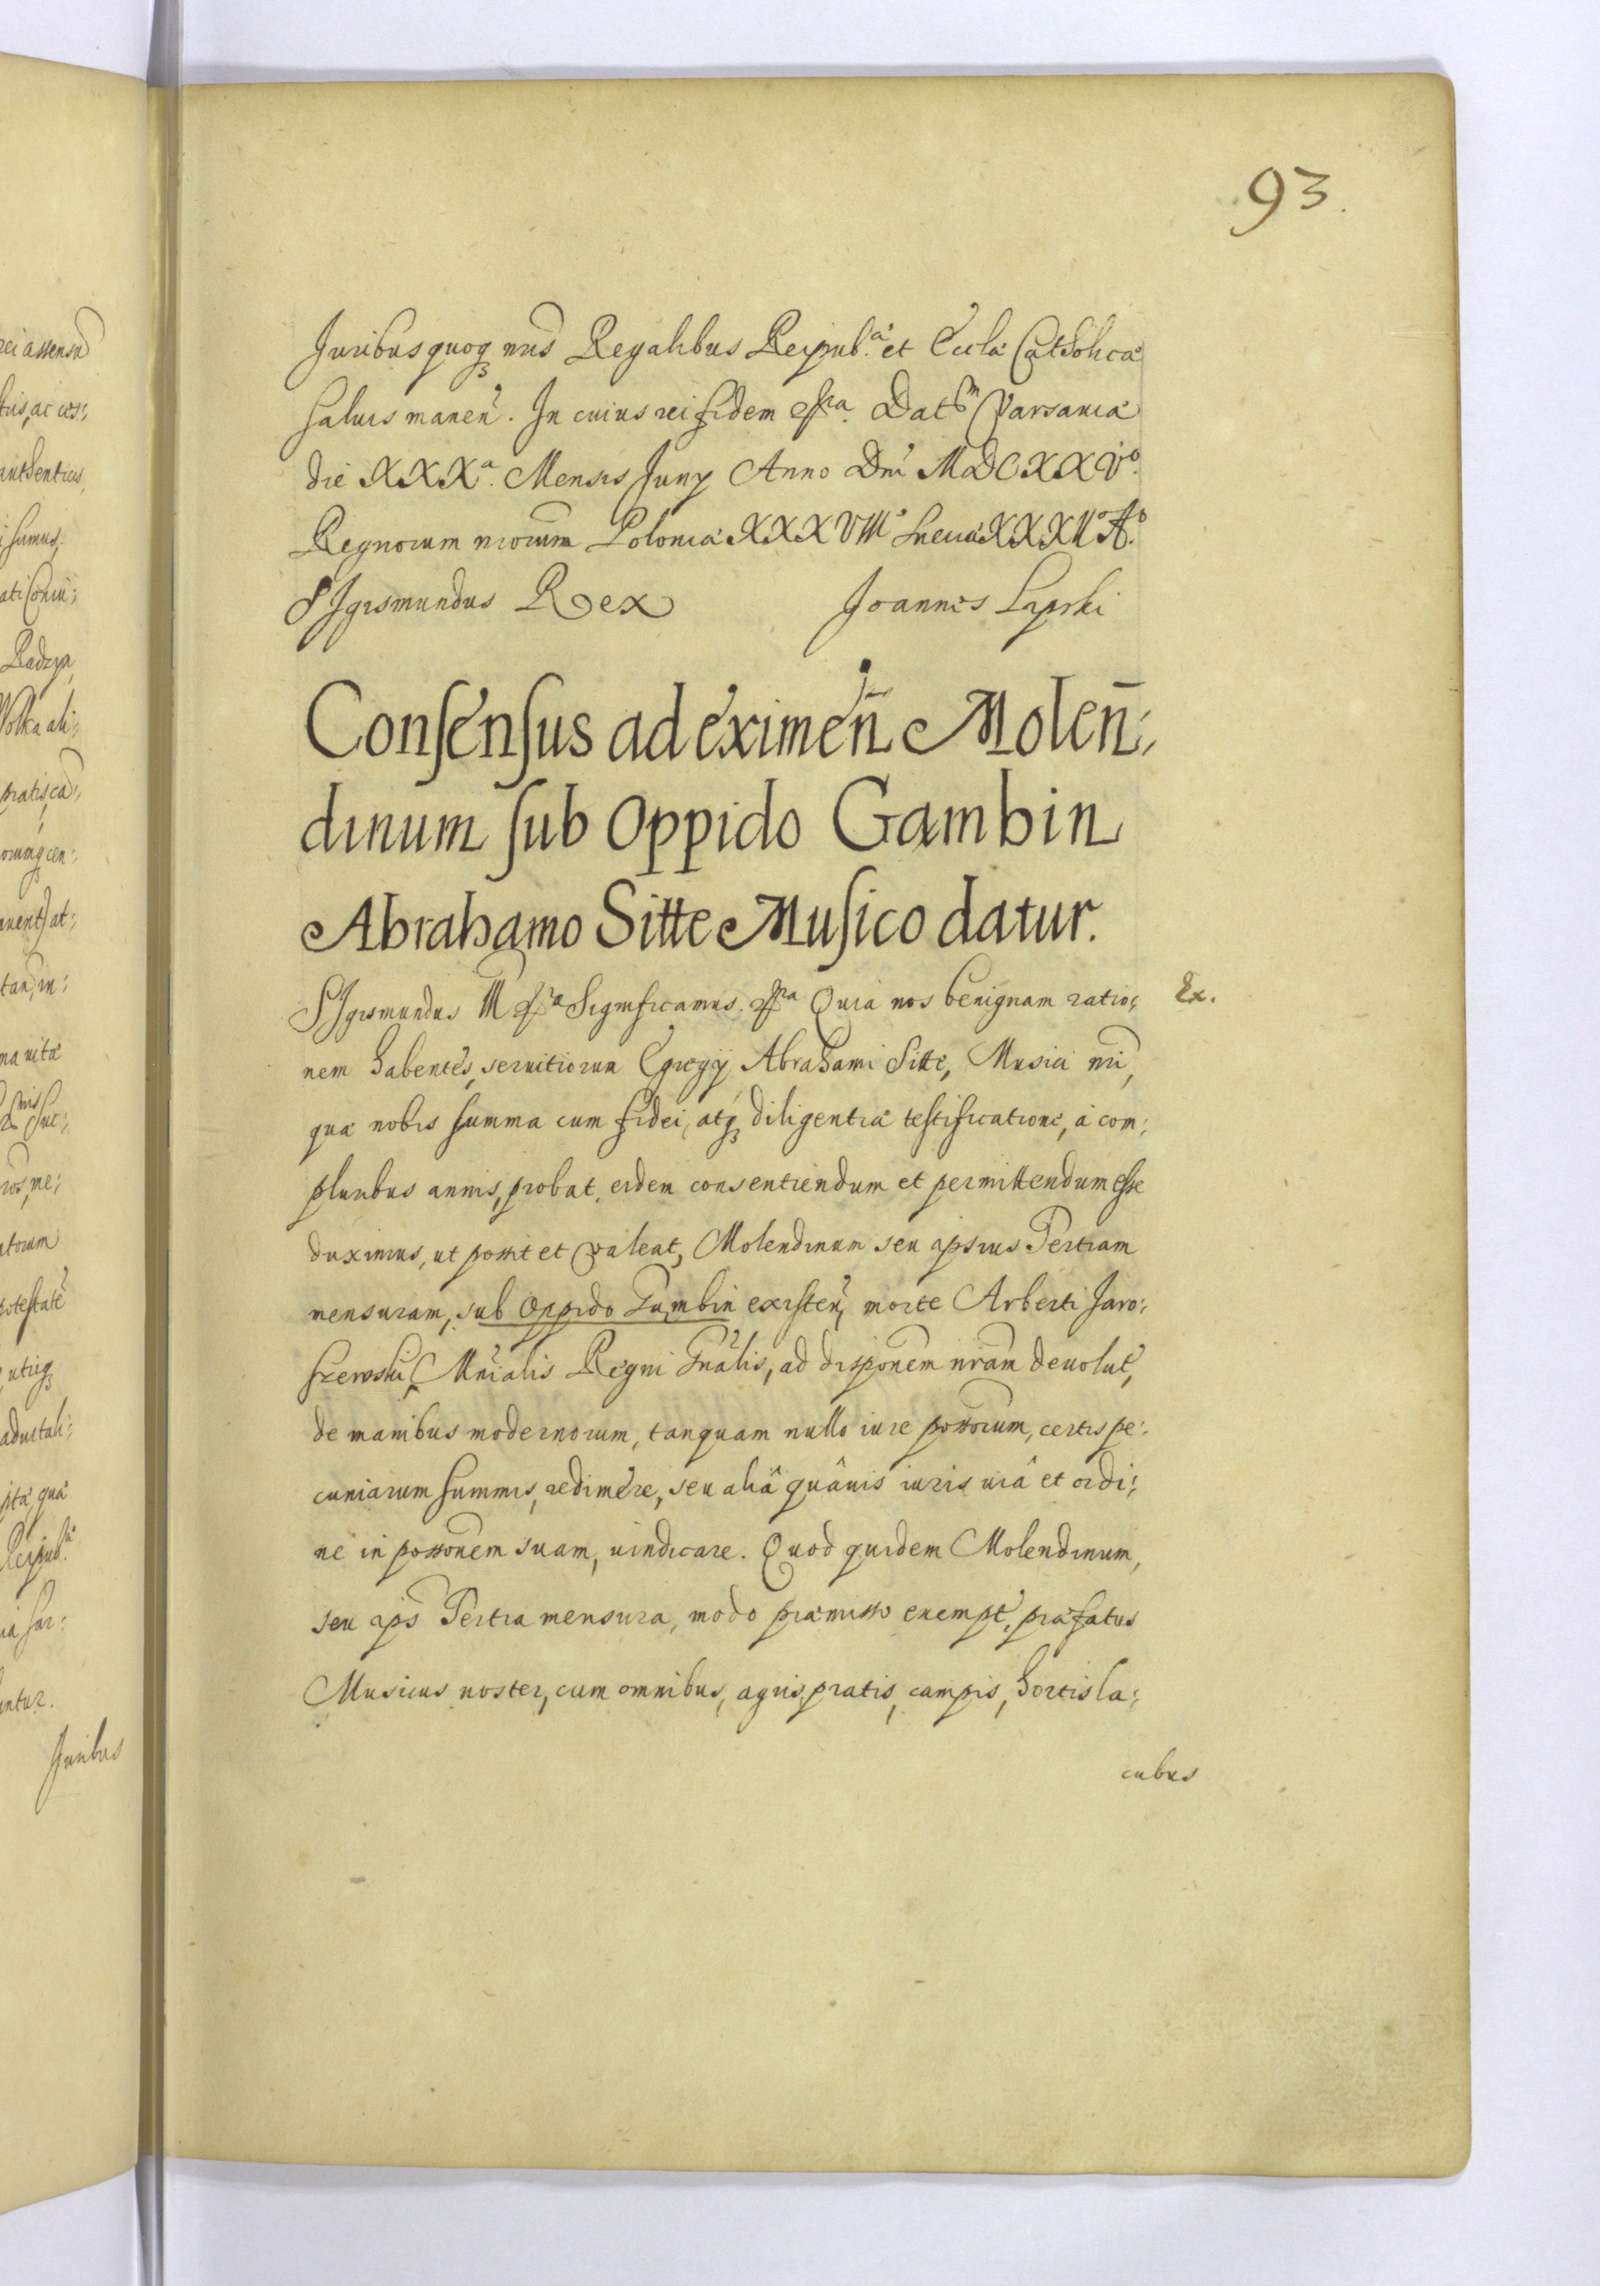 93.
Juribus quoq₃ nris Regalibus Reipub.ᵃᵉ et Eccla Catholica
saluis manen̄. In cuius rei fidem etca. Datm Varsauiæ
die XXXª. Mensis Juny Anno Dni MDCXXVº.
Regnorum nrorum Poloniæ XXXVIIIº Sueciæ XXXIIº Aº.
SIgismundus Rex Joannes Lipski
Consensus ad eximen̄ Molen̄:
dinum sub Oppido Gambin
Abrahamo Sitte Musico datur.
SIgismundus III etca Significamus etca Quia nos benignam ratio: Ex.
nem habentes, seruitiorum Egregij Abrahami Sitte, Musici nri,
quæ nobis summa cum fidei, atq₃ diligentiæ testificatione, à com:
pluribus annis, probat, eidem consentiendum et permittendum esse
duximus, ut possit et valeat, Molendinum seu ipsius Tertiam
mensuram, sub Oppido Gambin existen̄, morte Arberti Jaro:
szewski, Mnialis Regni Gnalis, ad disponem nram deuolut,
de manibus modernorum, tanquam nullo iure possorum, certis pe:
cuniarum summis, redimere, seu aliâ quâuis iuris uiâ et ordi:
ne in possonem suam, uindicare. Quod quidem Molendinum,
seu ips Tertia mensura, modo præmisso exempt, præfatus
Musicus noster, cum omnibus, agris, pratis, campis, hortis la:
cubus
rei assensu
tuis, ac ces:
authenticis,
sumus.
Radzya
Wolka ali:
pratis, ca:
anent) at:
tan, in:
ma uita
atorum
potestate
utriq₃
ita, quæ
Reipub.
untur.
Juribus